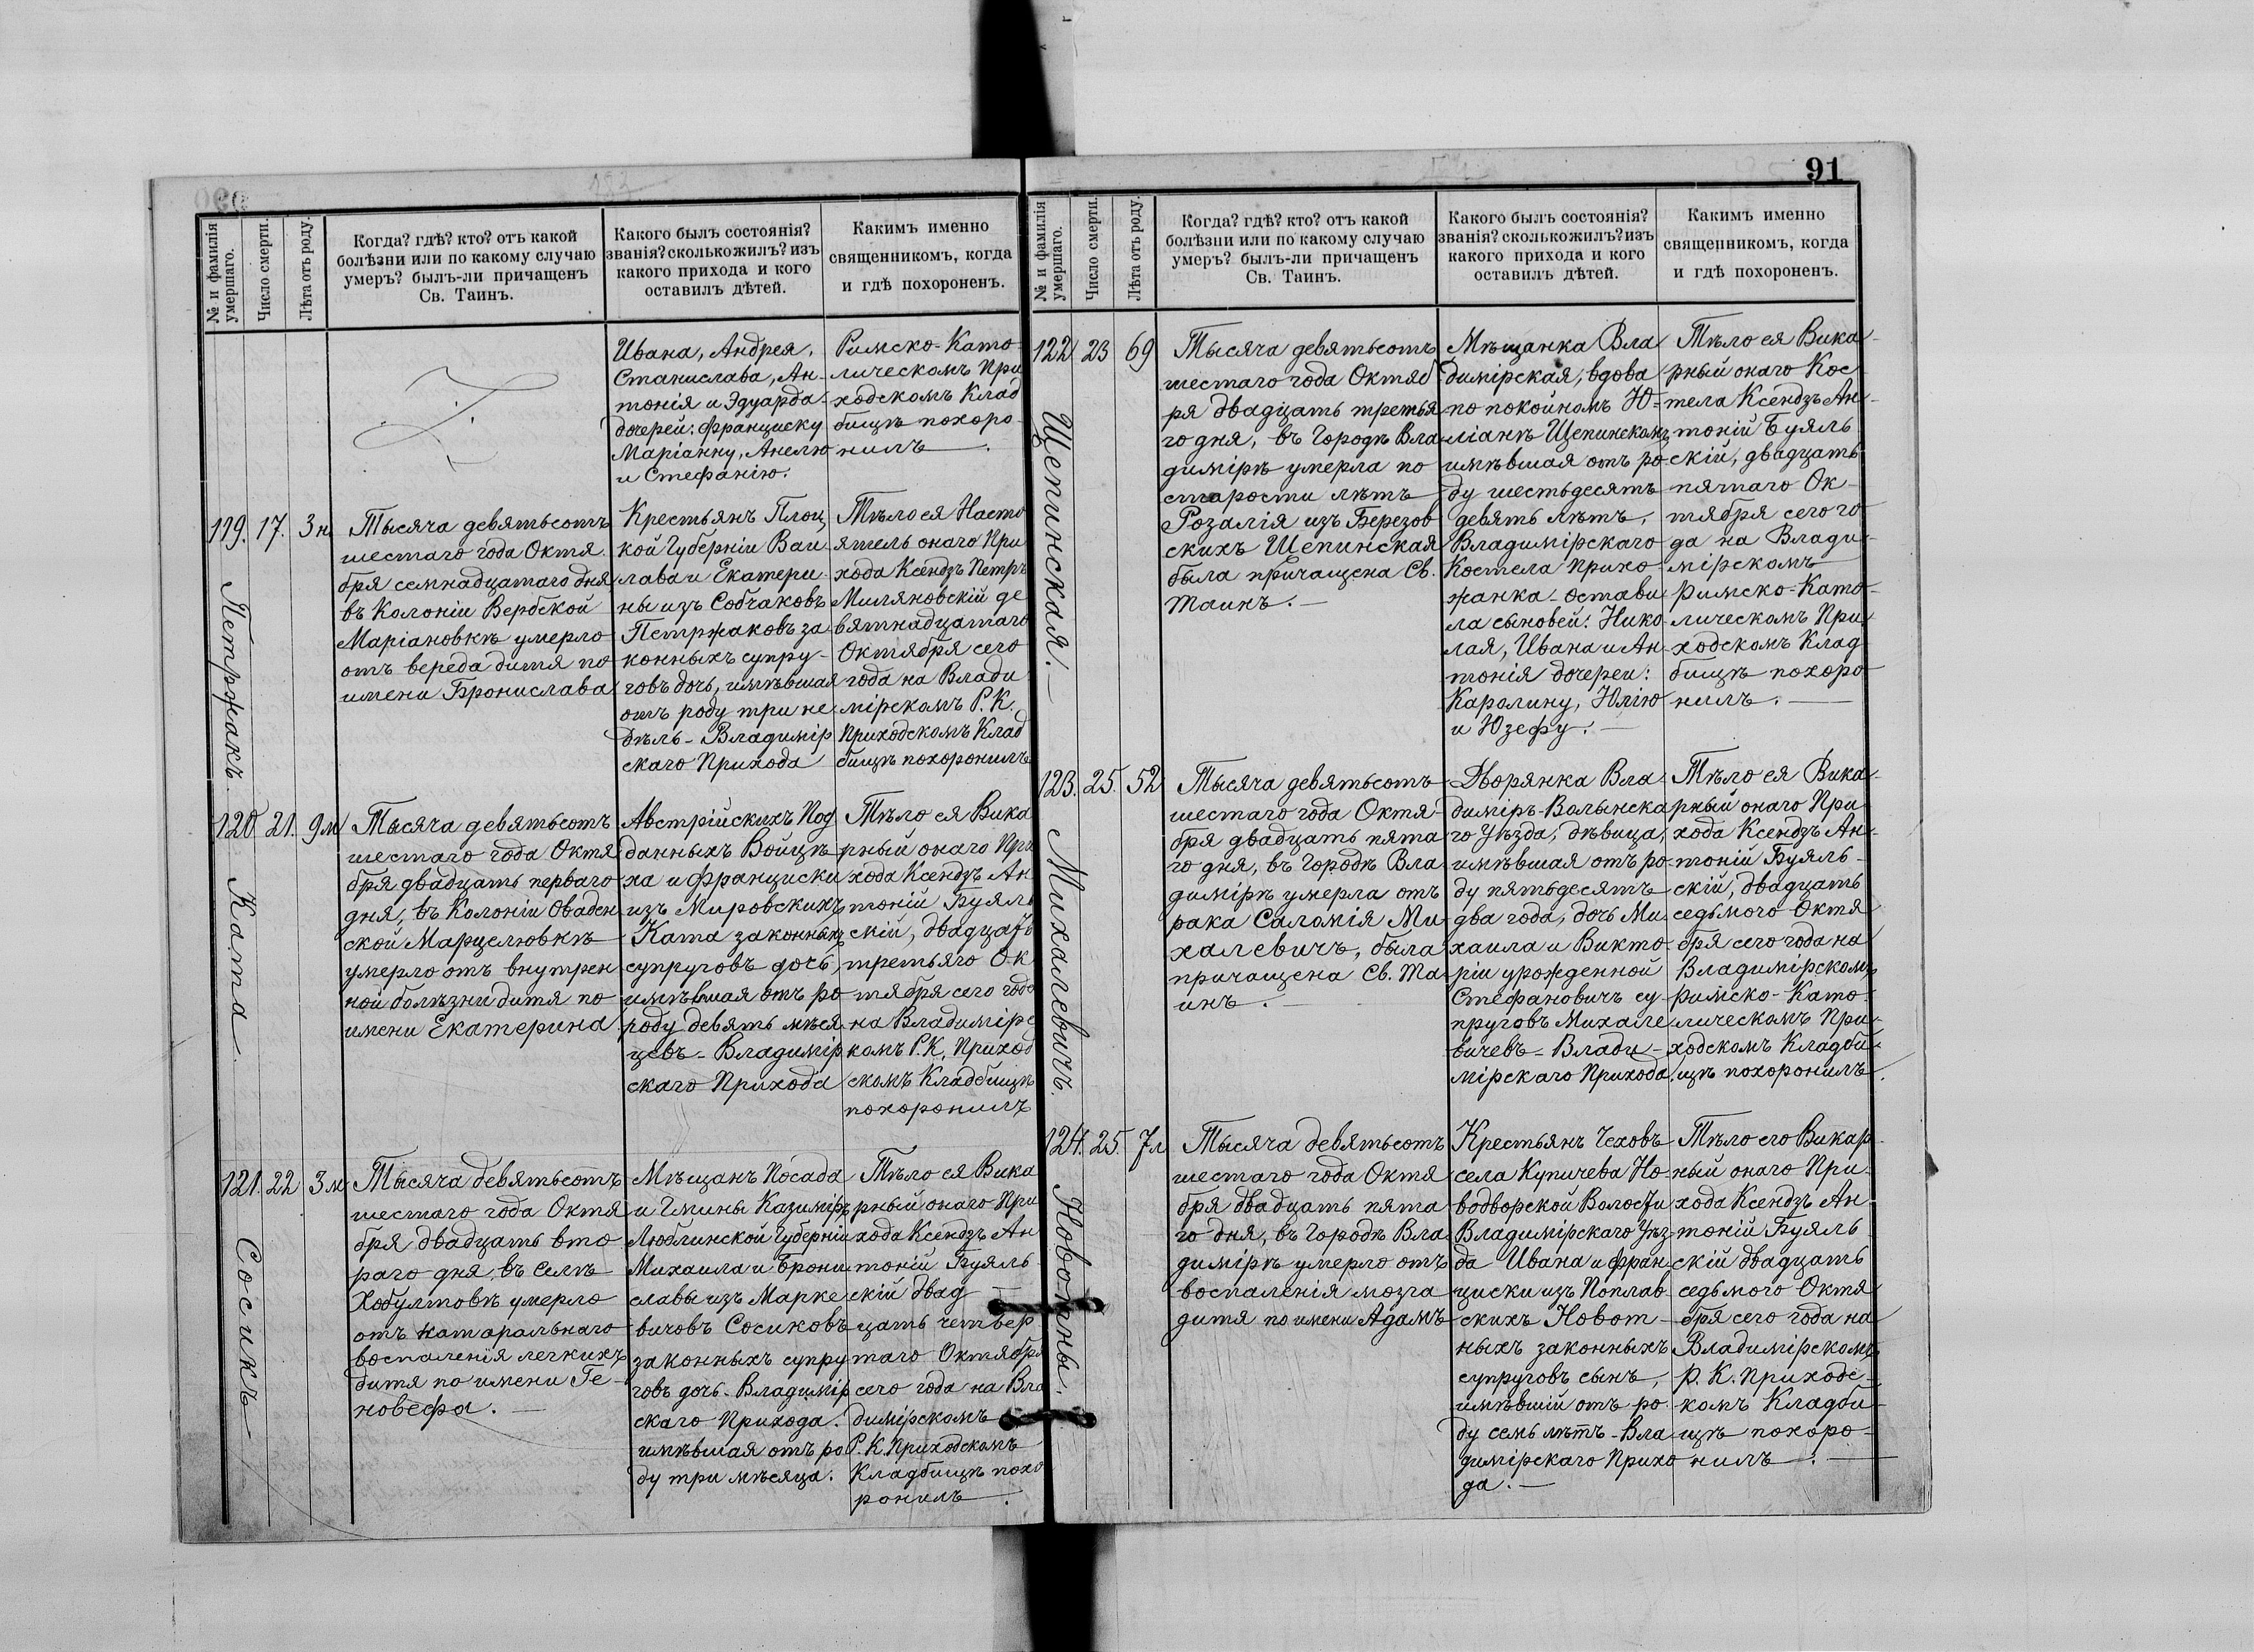 91
№ и фамилія
умершаго.
Число смерти.
Лѣта отъ роду.
Когда? гдѣ? кто? отъ какой
болѣзни или по какому случаю
умеръ? былъ-ли причащенъ
Св. Таинъ.
Какого былъ состоянія?
званія? сколько жилъ? изъ
какого прихода и кого
оставилъ дѣтей.
Какимъ именно
священникомъ, когда
и гдѣ похороненъ.
Ивана, Андрея,
Станислава, Ан-
тонія и Эдуарда
дочерей: Франциску
Маріанну, Анелю
и Стефанію.
Римско-Като-
лическомъ При
ходскомъ Клад
бищѣ похоро-
нилъ.
119. 17. 3 н
Петржакъ.
Тысяча девятьсотъ
шестаго года Октя
бря семнадцатаго дня
въ Колоніи Вербской
Маріановкѣ умерло
отъ вереда дитя по
имени Бронислава
Крестьянъ Плоц
кой Губерніи Вац
лава и Екатери
ны изъ Собчаковъ
Петржаковъ за
конныхъ супру-
говъ дочь, имѣвшая
отъ роду три не
дѣль - Владимір
скаго Прихода
Тѣло ея Насто
ятель онаго При
хода Ксендзъ Петръ
Миляновскій де
вятнадцатаго
Октября сего
года на Влади
мірскомъ Р. К.
Приходскомъ Клад
бищѣ похоронилъ
120. 21. 9 м
Ката.
Тысяча девятьсотъ
шестаго года Октя
бря двадцать перваго
дня, въ Колоніи Оваден
ской Марцелювкѣ
умерло отъ внутрен
ной болѣзни дитя по
имени Екатерина
Австрійскихъ Под
данныхъ Войцѣ
ха и Франциски
изъ Мировскихъ
Ката законныхъ
супруговъ дочь,
имѣвшая отъ ро
роду девять мѣся
цевъ - Владимір
скаго Прихода
Тѣло ея Вика
рный онаго При
хода Ксендзъ Ан
тоній Буяль
скій, двадцать
третьяго Ок
тября сего года
на Владимірс
комъ Р. К. Приход
скомъ Кладбищѣ
похоронилъ
121. 22 3 м
Сосикъ
Тысяча девятьсотъ
шестаго года Октя
бря двадцать вто
раго дня, въ селѣ
Хобултовѣ умерло
отъ катаральнаго
воспаленія легкихъ
дитя по имени Ге-
новефа.
Мѣщанъ Посада
и Гмины Казиміръ
Люблинской Губерніи
Михаила и Брони
славы изъ Марке
вичовъ Сосиковъ
законныхъ супру
говъ дочь - Владимір
скаго Прихода.
имѣвшая отъ ро
ду три мѣсяца.
Тѣло ея Вика
рный онаго При
хода Ксендзъ Ан
тоній Буяль-
скій двад
цать четвер
таго Октября
сего года на Вла
димірскомъ
Р. К. Приходскомъ
Кладбищѣ похо
ронилъ.
№ и фамилія
умершаго.
Число смерти.
Лѣта отъ роду.
Когда? гдѣ? кто? отъ какой
болѣзни или по какому случаю
умеръ? былъ-ли причащенъ
Св. Таинъ.
Какого былъ состоянія?
званія? сколько жилъ? изъ
какого прихода и кого
оставилъ дѣтей.
Какимъ именно
священникомъ, когда
и гдѣ похороненъ.
122 23 69
Щепинская.
Тысяча девятьсотъ
шестаго года Октяб
ря двадцать третья
го дня, въ Городѣ Вла
димірѣ умерла по
старости лѣтъ
Розалія изъ Березов
скихъ Щепинская
была причащена Св.
Таинъ.
Мѣщанка Вла
димірская, вдова
по покойномъ Ю-
ліанѣ Щепинскомъ
имѣвшая отъ ро
ду шестьдесятъ
девять лѣтъ.
Владимірскаго
Костела прихо
жанка - остави
ла сыновей: Нико
лая, Ивана и Ан
тонія дочереи:
Каролину, Юлію
и Юзефу.
Тѣло ея Вика-
рный онаго Кос-
тела Ксендзъ Ан-
тоній Буяль
скій, двадцать
пятаго Ок-
тября сего го
да на Влади-
мірскомъ
Римско-Като-
лическомъ При
ходскомъ Клад
бищѣ похоро
нилъ.
123. 25. 52
Михалевичъ.
Тысяча девятьсотъ
шестаго года Октя-
бря двадцать пята
го дня, въ Городѣ Вла
димірѣ умерла отъ
рака Саломія Ми-
халевичъ, была
причащена Св. Та
инъ.
Дворянка Вла
диміръ-Волынска
го Уѣзда, дѣвица,
имѣвшая отъ ро
ду пятьдесятъ
два года, дочь Ми
хаила и Викто
ріи урожденной
Стефановичъ су-
пруговъ Михале
вичевъ - Влади-
мірскаго Прихода.
Тѣло ея Вика-
рный онаго При
хода Ксендзъ Ан-
тоній Буяль-
скій, двадцать
седьмого Октя
бря сего года на
Владимірскомъ
Римско-Като-
лическомъ При-
ходскомъ Кладби-
щѣ похоронилъ.
124. 25. 7 л
Новотны.
Тысяча девятьсотъ
шестаго года Октя
бря двадцать пята
го дня, въ Городѣ Вла
димірѣ умерло отъ
воспаленія мозга
дитя по имени Адамъ
Крестьянъ Чеховъ
села Купичева Но-
водворской Волости
Владимірскаго Уѣз
да Ивана и Фран
циски изъ Поплав
скихъ Новот-
ныхъ законныхъ
супруговъ сынъ,
имѣвшій отъ ро
ду семь лѣтъ - Вла
димірскаго Прихо
да.
Тѣло его Викар-
ный онаго При-
хода Ксендзъ Ан-
тоній Буяль
скій двадцать
седьмого Октя
бря сего года на
Владимірскомъ
Р. К. Приходс-
комъ Кладби-
щѣ похоро-
нилъ.